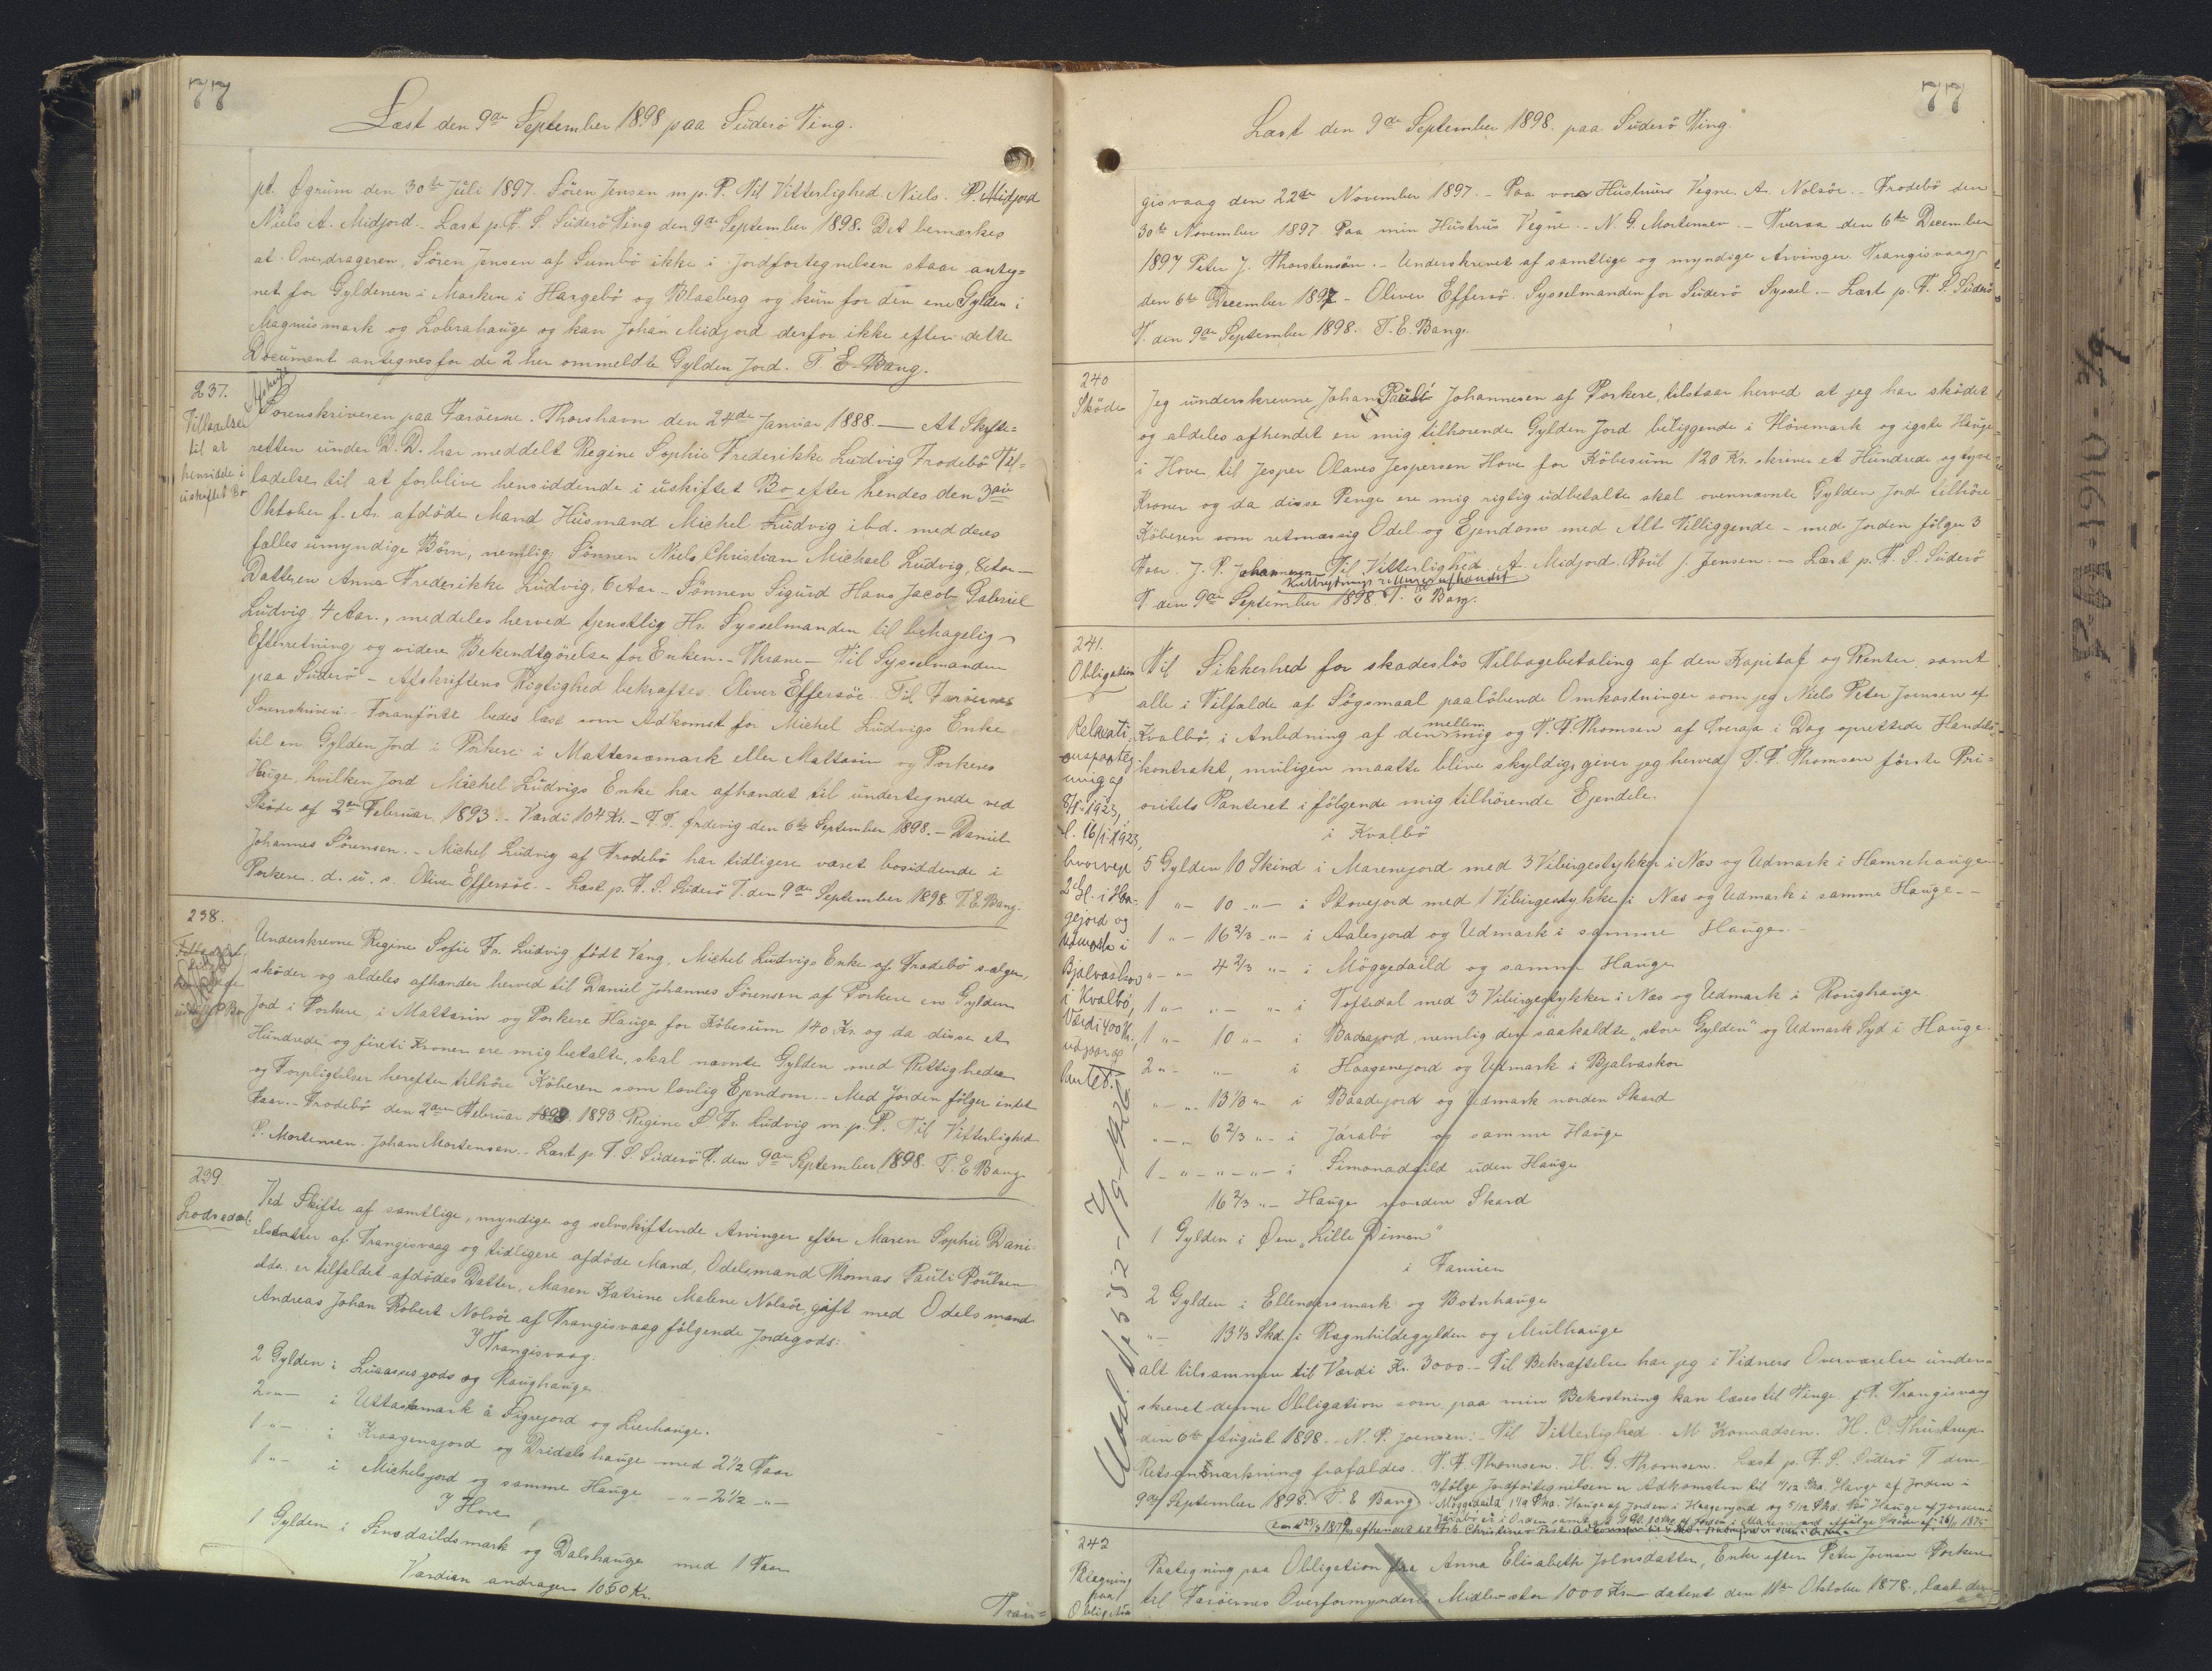 77
Læst den 9de September 1898 paa Suderö Ting.
pt. Øgrum den 30te Juli 1897. Sören Jensen m. p. P. Til Vitterlighed Niels P. Midjord
Niels A. Midjord. Læst p. F. S. Suderö Ting den 9de September 1898. Det bemærkes
at Overdrageren, Sören Jensen af Sumbö ikke i Jordfortegnelsen staar anteg=
net for Gyldenen i Marken i Hargebö og Blaaberg og kun for den ene Gylden i
Magnusmark og Lobrahauge og kan Johan Midjord derfor ikke efter dette
Document antegnes for de 2 her ommeldte Gylden Jord. T. E. Bang.
237.
Tilladelse
til at
hensidde i
uskiftet Bo
Afskrift
Sorenskriveren paa Færöerne. Thorshavn den 24de Januar 1888. — At Skifte=
retten under D. D. har meddelt Regine Sophie Frederikke Ludvig Frodebö Til=
ladelse til at forblive hensiddende i uskiftet Bo efter hendes den 3die
Oktober f. A. afdöde Mand Husmand Michel Ludvig ibd. med deres
fælles umyndige Börn, nemlig: Sönnen Niels Christian Michael Ludvig, 8 Aar —
Datteren Anna Frederikke Ludvig, 6 Aar — Sönnen Sigurd Hans Jacob Gabriel
Ludvig 4 Aar., meddeles herved tjenstlig Hr. Sysselmanden til behagelig
Efterretning og videre Bekendtgörelse for Enken. — Thrane — Til Sysselmanden
paa Suderö — Afskriftens Rigtighed bekræftes. Oliver Effersöe. Til Færöernes
Sorenskriveri. Foranförte bedes læst som Adkomst for Michel Ludvigs Enke
til en Gylden Jord i Porkere i Mattarsæmark eller Mattarin og Porkeres
Hauge, hvilken Jord Michel Ludvigs Enke har afhandet til undertegnede ved
Sköde af 2den Februar 1893. — Værdi 104 Kr. — F. T. Ørdevig den 6te September 1898. — Daniel
Johannes Sörensen. — Michel Ludvig af Frodebö har tidligere været bosiddende i
Porkere. d. u. s. Oliver Effersöe. — Læst p. F. S. Suderö T. den 9de September 1898. T. E. Bang.
238.
Underskrevne Regine Sofie Fr. Ludvig födt Vang, Michel Ludvigs Enke af Frodebö sælger,
sköder og aldeles afhænder herved til Daniel Johannes Sörensen af Porkere en Gylden
Jord i Porkere, i Mattarin og Porkere Hauge for Köbesum 140 Kr. og da disse et
Hundrede og fireti Kroner ere mig betalte, skal nævnte Gylden med Rettigheder
og Forpligtelser herefter tilhöre Köberen som lovlig Ejendom. — Med Jorden fölger intet
Faar. — Frodebö den 2den Februar 1893. Regine S. Fr. Ludvig m. p. P. Til Vitterlighed
P. Mortensen. Johan Mortensen. — Læst p. F. S. Suderö T. den 9de September 1898. T. E. Bang
239.
Lodseddel.
Ved Skifte af samtlige, myndige og selvskiftende Arvinger efter Maren Sophie Dani-
elsdatter af Trangisvaag og tidligere afdöde Mand, Odelsmand Thomas Pauli Poulsen
stds. er tilfaldet afdödes Datter, Maren Katrine Malene Nolsöe, gift med Odelsmand
Andreas Johan Robert Nolsöe af Trangisvaag fölgende Jordegods:
I Trangisvaag:
2 Gylden i Lusassesgods og Raughauge
2 — " — i Uttastamark å Sigrejord og Lierhauge.
1 " — i Kraagenajord og Dridals hauge med 2 1/2 Faar
1 " — i Michelsjord og samme Hauge — " — 2 1/2 — " —
I Hove
1 Gylden i Sinsdaildsmark og Dalshauge med 1 Faar
Værdien andrager 1050 Kr.
Tran=
77
Læst den 9de September 1898. paa Suderö Ting.
gisvaag den 22de November 1897. — Paa vore Hustruers Vegne. A. Nolsöe. — Frodebö den
30te November 1897. Paa min Hustrus Vegne. — N. G. Mortensen. — Tveraa den 6te December
1897 Peter J. Thorstensön. — Underskrevet af samtlige og myndige Arvinger. Trangisvaag
den 6te December 1897 — Oliver Effersö. Sysselmanden for Suderö Syssel. — Læst p. F. S. Suderö
T. den 9de September 1898. T. E. Bang.
240
Sköde
Jeg underskrevne Johan Pauli Johannesen af Porkere, tilstaar herved at jeg har sködet
og aldeles afhendet en mig tilhorende Gylden Jord beliggende i Hövemark og igste Hauge
i Hove til Jesper Olaves Jespersen Hove for Köbesum 120 Kr. skriver et Hundrede og tyve
Kroner og da disse Penge ere mig rigtig udbetalte skal ovennævnte Gylden Jord tilhöre
Köberen som retmæssig Odel og Ejendom med Alt Tilliggende — med Jorden fölger 3
Faar. J. P. Johannesen. Til Vitterlighed. A. Midjord. Poul J. Jensen. — Læst p. F. S. Suderö
T. den 9de September 1898. T. E. Bang.
241.
Obligation
Til Sikkerhed for skadeslös Tilbagebetaling af den Kapital og Renter samt
alle i Tilfælde af Sögsmaal paalöbende Omkostninger som jeg Niels Peter Joensen af
Kvalbö i Anledning af den mellem mig og T. F. Thomsen af Tveraa i Dag oprettede Handels-
kontrakt, muligen maatte blive skyldig, giver jeg herved T. F. Thomsen förste Pri-
oritets Panteret i fölgende mig tilhörende Ejendele.
i Kvalbö
5 Gylden 10 Skind i Marenejord med 3 Viburgestykker i Næs og Udmark i Hamrehauge
1 " — 10 — " — i Stovejord med 1 Viburgestykke i Næs og Udmark i samme Hauge. —
1 " — 16 2/3 — " — i Aalesjord og Udmark i samme Hauge. —
" — " — 4 2/3 " — i Möggedaild og samme Hauge
1 " — " — " — i Toftedal med 3 Viburgestykker i Næs og Udmark i Roughauge.
1 " — 10 " — i Badsajord, nemlig den saakaldte "store Gylden" og Udmark Syd i Hauge.
2 " — " — i Haagenejord og Udmark i Bjalvaskor
" — " — 13 1/3 " — i Baadejord og Udmark norden Skard
" — " — 6 2/3 " — i Járabö og samme Hauge
1 — " — " — " — i Simonadaild uden Hauge
16 2/3 " — Hauge norden Skard
1 Gylden i Øen "Lille Dimon"
i Famien
2 Gylden i Ellendersmark og Botnhauge
" — 13 1/3 Skd. i Ragnhildegylden og Mulhauge
alt tilsammen til Værdi Kr. 3000. — Til Bekræftelse har jeg i Vidners Overværelse under-
skrevet denne Obligation som paa min Bekostning kan læses til Tinge. p. T. Trangisvaag
den 6te August 1898. — N. P. Joensen. — Til Vitterlighed. M. Konradsen. H. C. Thustrup.
Retsanmærkning frafaldes. T. F. Thomsen. H. G. Thomsen. Læst p. F. S. Suderö T. den
9de September 1898. T. E. Bang.
Ifölge Jordfortegnelsen er Adkomsten til
Relaxati-
8/1 1923,
l. 16/1 1923,
hvorved
2 Gl. i Haa-
gejord og
Udmark i
Bjalvaskor
i Kvalbö,
Værdi 400 Kr.,
udgaar af
Pantet.
242
Paategning
paa
Obligation
Paategning paa Obligation fra Anna Elisabeth Joensdatter, Enke efter Peter Joensen Porkere
til Færöernes Overformynderis Midler stor 1000 Kr. — dateret den 11te Oktober 1878, læst den